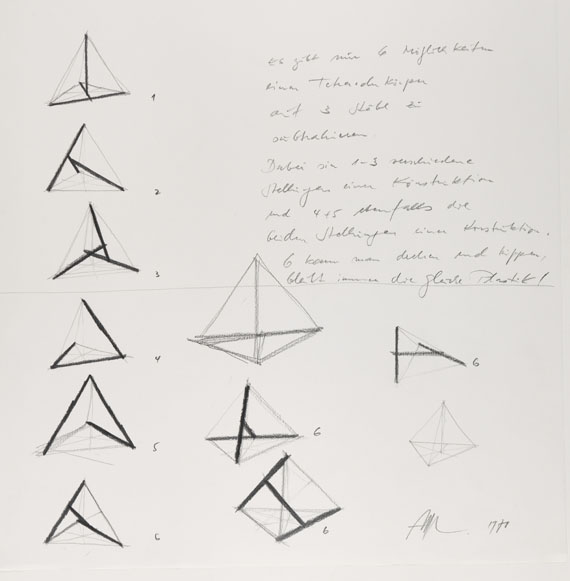 Es gibt nur 6 Möglichkeiten
einen Tetraederkörper
auf 3 Stäbe zu
subtrahieren.
Dabei sin 1-3 verschiedene
Stellungen einer Konstruktion
und 4+5 ebenfalls die
beiden Stellungen einer Konstruktion.
6 kann man drehen und kippen,
bleibt immer die gleiche Plastik!
1
2
3
4
5
6
6
6
6